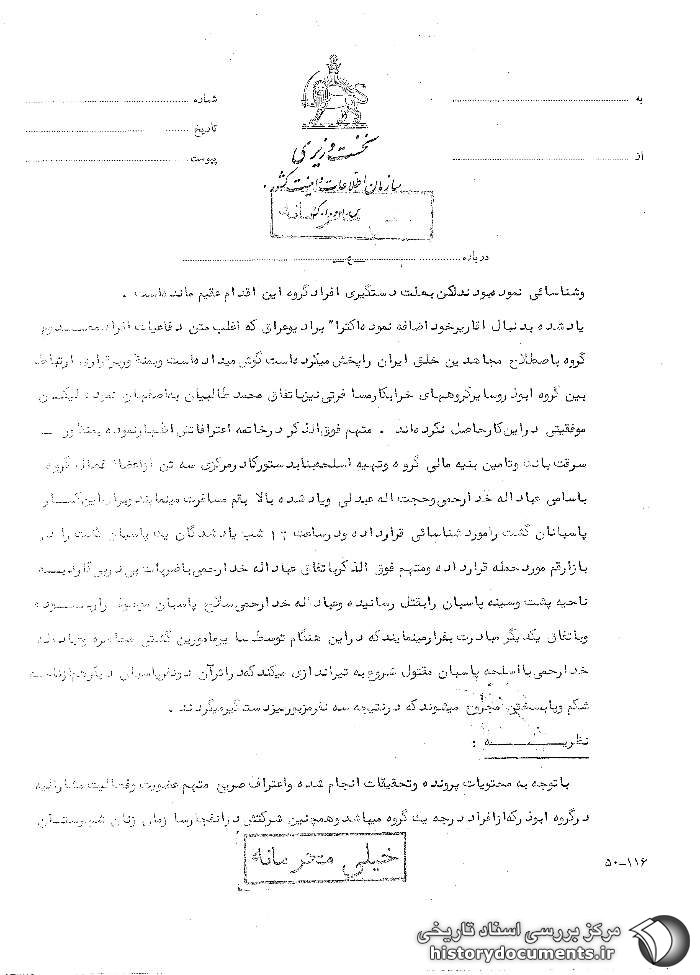 به
شماره
از
تاریخ
پیوست
نخست وزیری
سازمان اطلاعات و امنیت کشور
درباره
وشناسائی نموده بودند لکن بعلت دستگیری افراد گروه این اقدام عقیم مانده است .
یاد شده بدنبال اقاریر خود اضافه نموده اکثرا" برادیو عراق که اغلب متن دفاعیات افراد
گروه باصطلاح مجاهدین خلق ایران را پخش میکرده است گوش میداده است وبمنظور برقراری ارتباط
بین گروه ابوذر وسایر گروههای خرابکار مسافرتی نیز باتفاق محمد طالبیان به اصفهان نموده لیکن
موفقیتی در این کار حاصل نکرده اند . متهم فوق الذکر در خاتمه اعترافاتش اظهار نموده بمنظور
سرقت بانک وتامین بنیه مالی گروه وتهیه اسلحه بنا بدستور کادر مرکزی سه تن از اعضاء فعال گروه
باسامی عباداله خدارحمی وحجت اله عبدلی ویاد شده بالا بقم مسافرت مینمایند وبرای این کار
پاسبانان گشت را مورد شناسائی قرار داده ودر ساعت ۱۲ شب یاد شدگان یک پاسبان گشت را در
بازار قم مورد حمله قرار داده ومتهم فوق الذکر باتفاق عباداله خدارحمی با ضربات پی در پی کارد به
ناحیه پشت وسینه پاسبان را بقتل رسانیده وعباداله خدارحمی سلاح پاسبان را ربوده
وباتفاق یکدیگر مبادرت بفرار مینمایند که در این هنگام توسط سایر مامورین گشتی محاصره وعباداله
خدارحمی با اسلحه پاسبان مقتول شروع به تیراندازی میکند که در اثر آن دو نفر پاسبان دیگر هم از ناحیه
شکم وپا بسختی مجروح میشوند که در نتیجه سه نفر مزبور نیز دستگیر میگردند .
نظریه :
با توجه به محتویات پرونده وتحقیقات انجام شده واعتراف صریح متهم عضویت وفعالیت مشارالیه
در گروه ابوذر که از افراد درجه یک گروه میباشد وهمچنین شرکتش در انفجار سازمان زنان شهرستان
خیلی محرمانه
۵۰-۱۱۶
مرکز بررسی اسناد تاریخی
historydocuments.ir